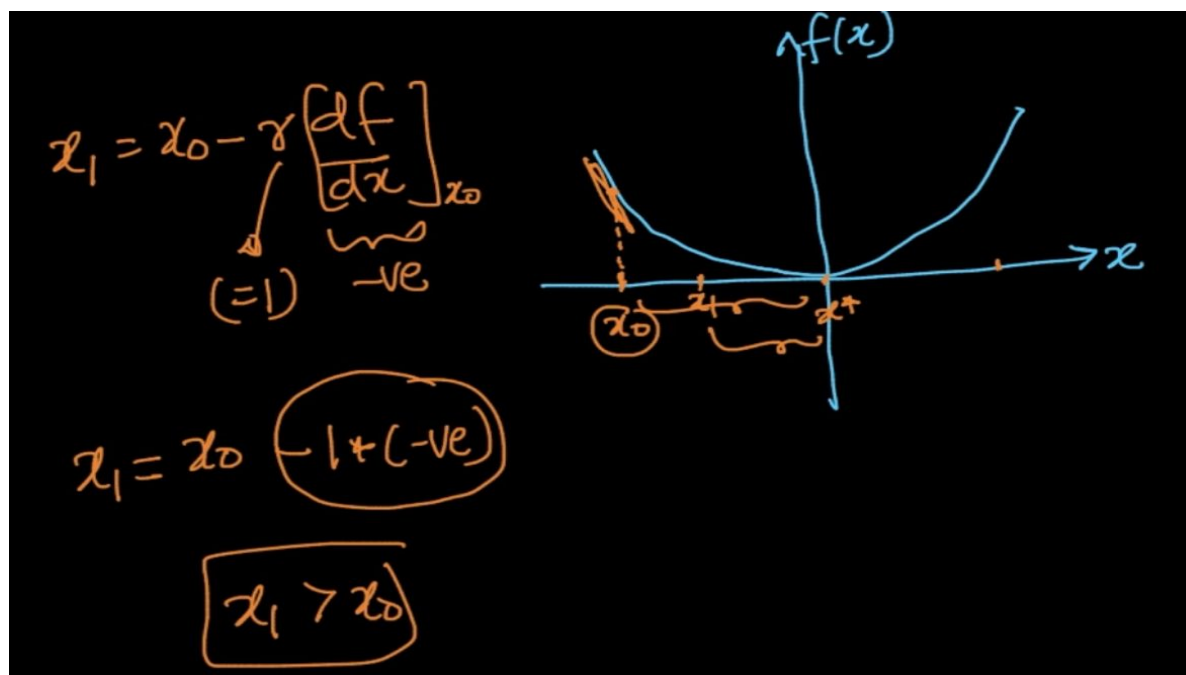 x₁ = x₀ - γ [df/dx]ₓ₀
(=1) -ve
x₁ = x₀ - 1*(-ve)
x₁ > x₀
f(x)
x
x₀ x₁ x*